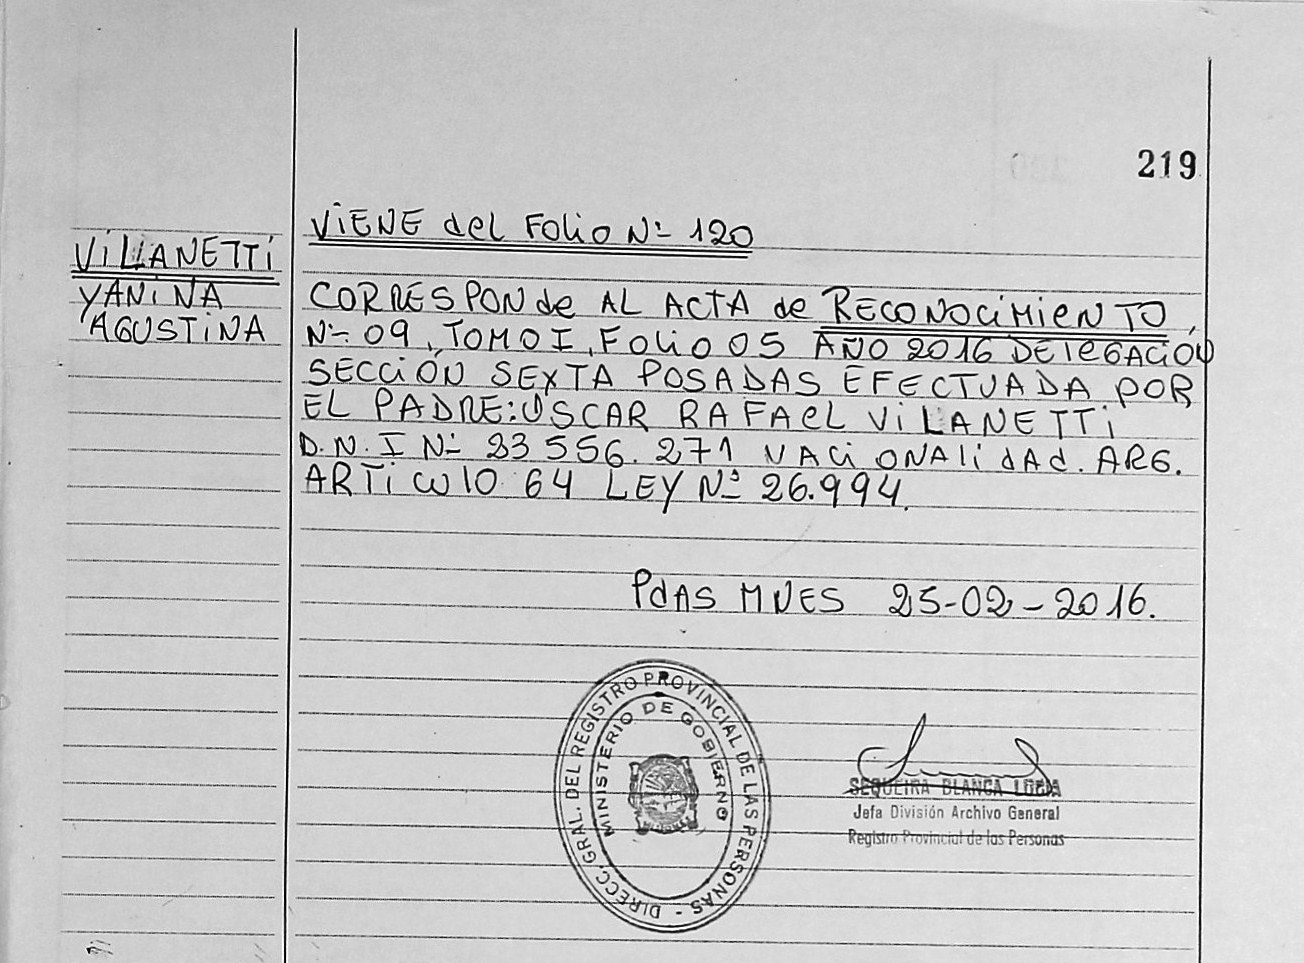 219
VIENE del Folio Nº 120
VILLANETTI
YANINA
AGUSTINA
CORRESPONde AL ACTA de RECONOCIMIENTO,
Nº 09, TOMO I, Folio 05 AÑO 2016 DELEGACIÓN
SECCIÓN SEXTA POSADAS EFECTUADA POR
EL PADRE: OSCAR RAFAEL VILANETTI
D.N.I Nº 23 556.271 NACIONALIDAD. ARG.
ARTICULO 64 LEY Nº 26.994.
PdAS MNES 25-02-2016.
DIRECC. GRAL. DEL REGISTRO PROVINCIAL DE LAS PERSONAS -
MINISTERIO DE GOBIERNO
SEQUEIRA BLANCA
Jefa División Archivo General
Registro Provincial de las Personas